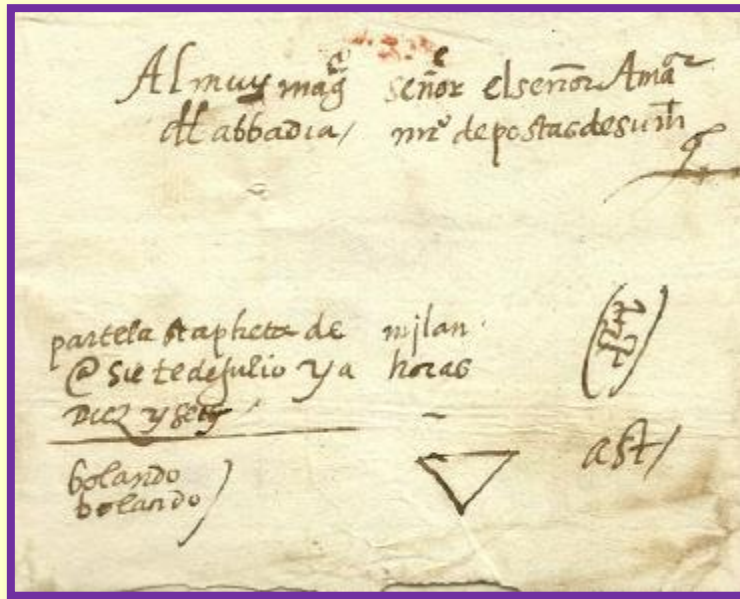 Al muy mag.co señor el señor Amar
dll abbadia / mro de postas de su mt
parte la stapheta de mjlan
@ siete de Julio y a horas
Diez y seys
bolando
bolando
ast /